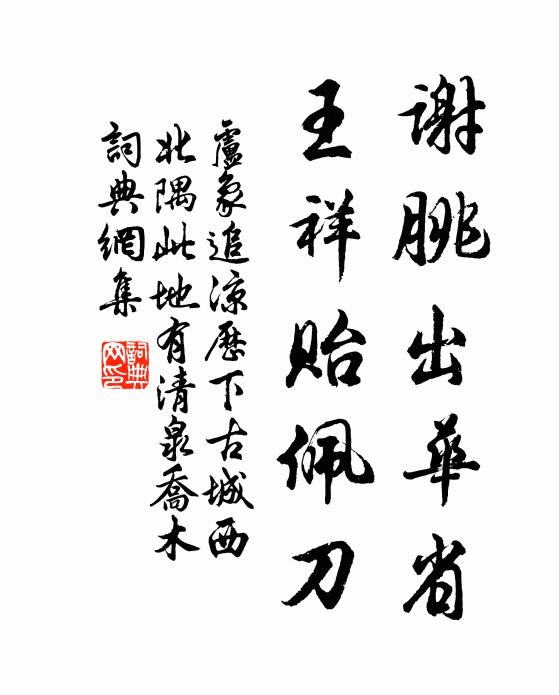 謝朓出華省
王祥貽佩刀
盧象追涼歷下古城西
北隅此地有清泉喬木
詞典網集
詞典網印